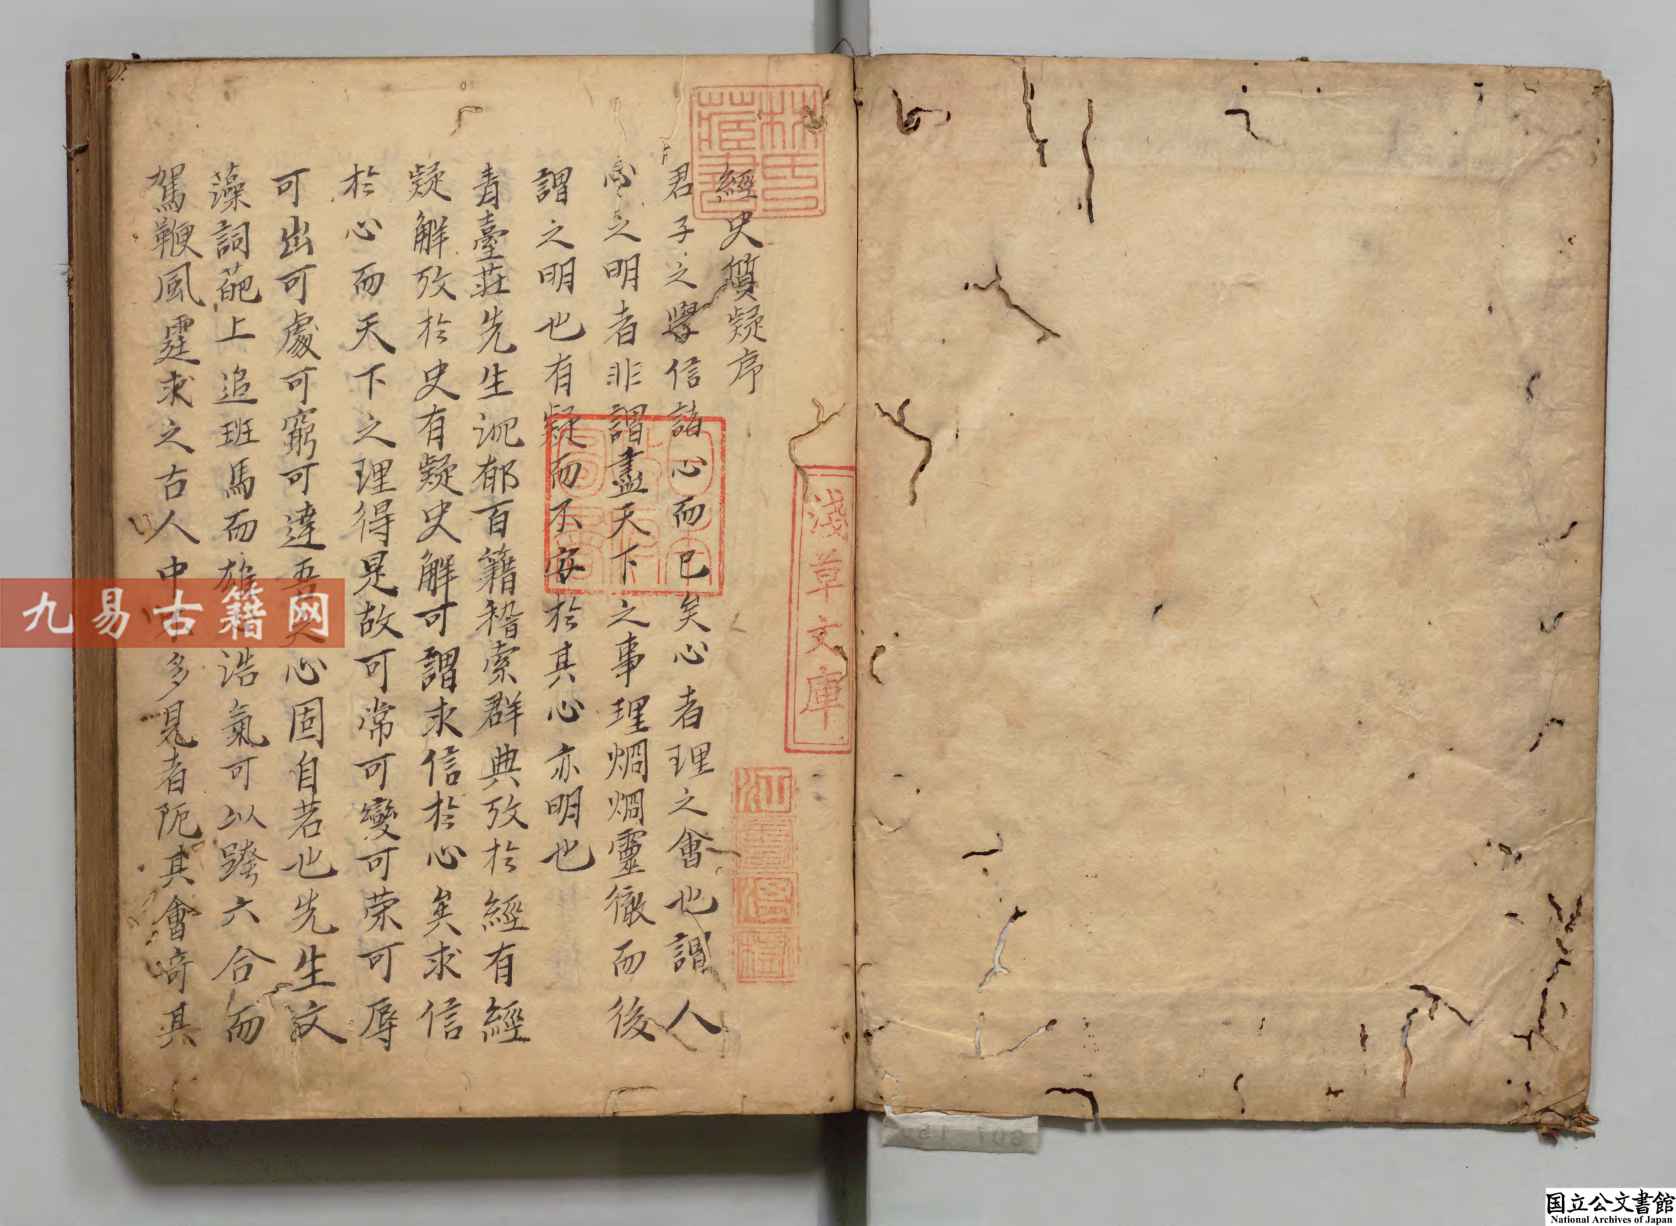 經史質疑序
君子之學信諸心而已矣心者理之會也謂人
心之明者非謂盡天下之事理烱烱靈徹而後
謂之明也有疑而不安於其心亦明也
青臺莊先生沉郁百籍稽索群典攷於經有經
疑解攷於史有疑史解可謂求信於心矣求信
於心而天下之理得是故可常可變可荣可辱
可出可處可窮可達吾心固自若也先生文
藻詞葩上追班馬而雄浩氣可以跨六合而
駕鞭風霆求之古人中多見者阨其會奇其
林氏藏書
日本政府圖書
淺草文庫
九易古籍网
国立公文書館
National Archives of Japan